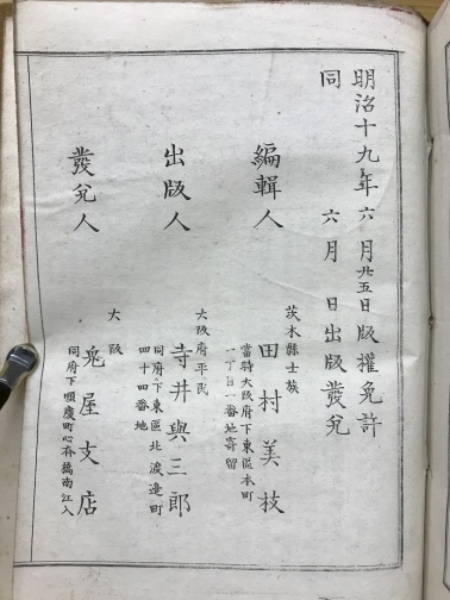 明治十九年六月廿五日版權免許
同 六月 日出版發兌
編輯人
茨木縣士族
田村美枝
當時大阪府下東區本町
一丁目一番地寄留
出版人
大阪府平民
寺井與三郎
同府下東區北渡邊町
四十四番地
發兌人
大阪
兎屋支店
同府下順慶町心斎橋南江入